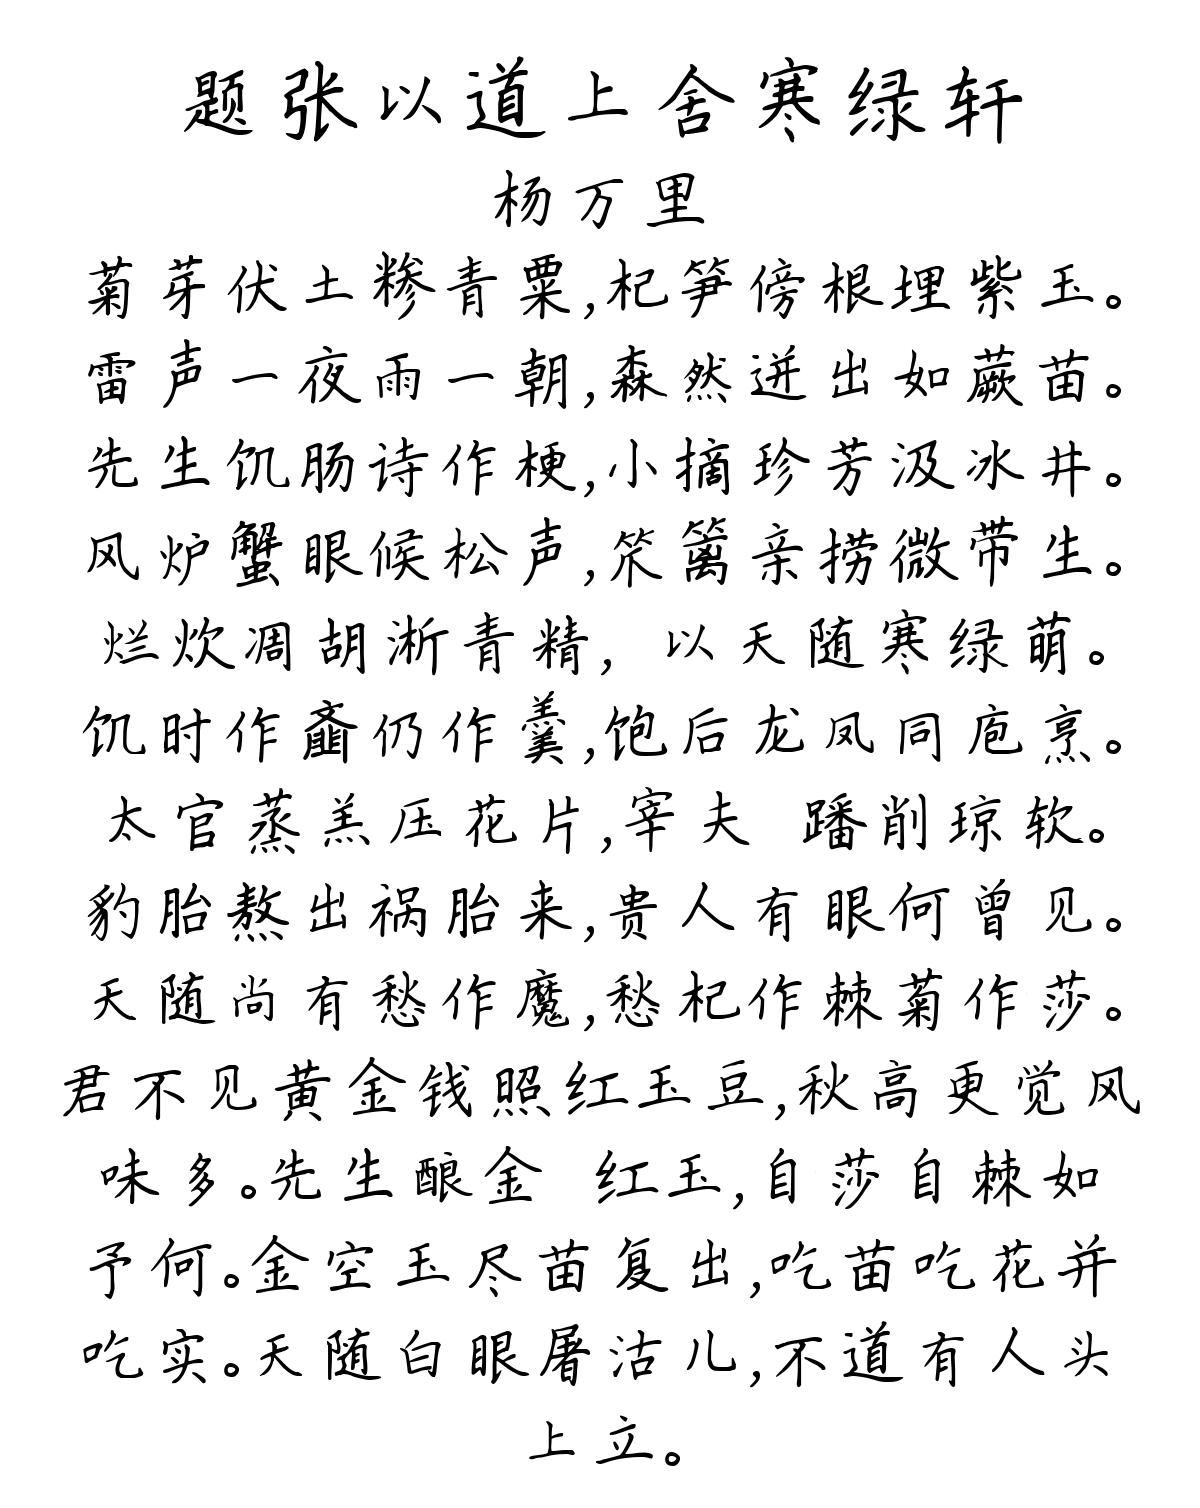 题张以道上舍寒绿轩
杨万里
菊芽伏土糁青粟,杞笋傍根埋紫玉。
雷声一夜雨一朝,森然迸出如蕨苗。
先生饥肠诗作梗,小摘珍芳汲冰井。
风炉蟹眼候松声,笊篱亲捞微带生。
烂炊凋胡淅青精，以天随寒绿萌。
饥时作齑仍作羹,饱后龙凤同庖烹。
太官蒸羔压花片,宰夫 蹯削琼软。
豹胎熬出祸胎来,贵人有眼何曾见。
天随尚有愁作魔,愁杞作棘菊作莎。
君不见黄金钱照红玉豆,秋高更觉风
味多。先生酿金 红玉,自莎自棘如
予何。金空玉尽苗复出,吃苗吃花并
吃实。天随白眼屠沽儿,不道有人头
上立。